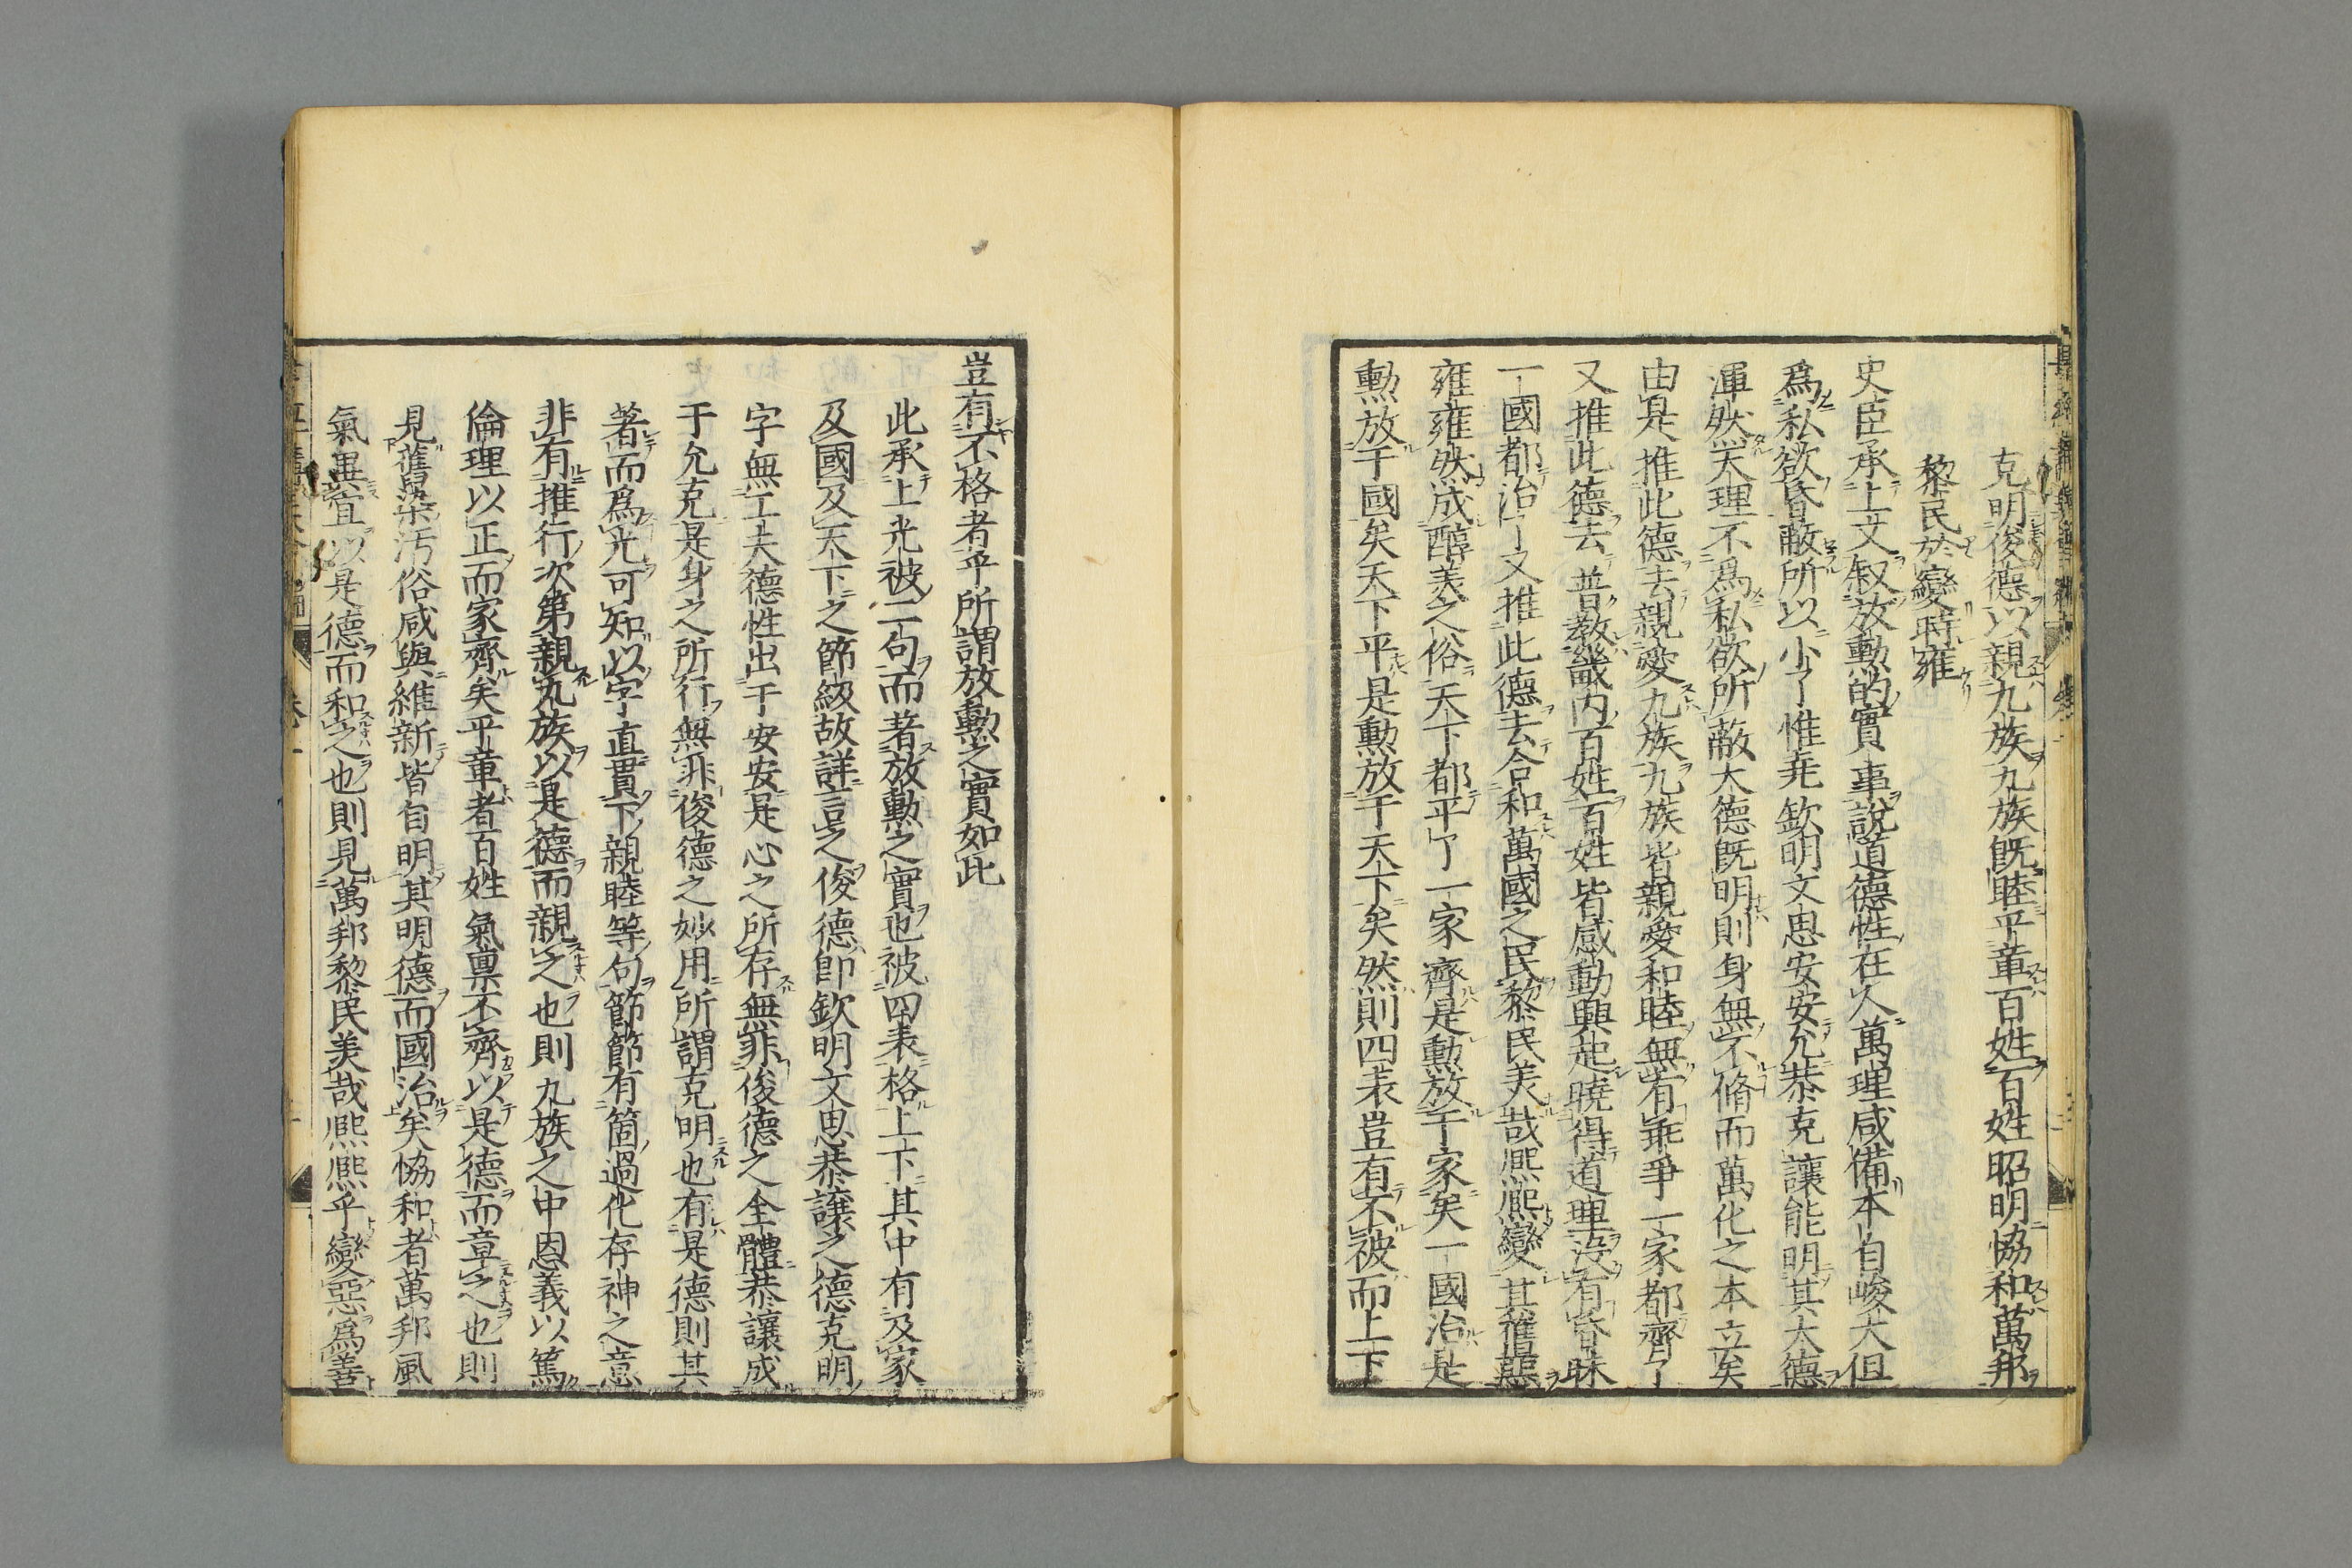 克明俊德以親九族九族既睦平章百姓百姓昭明協和萬邦
黎民於變時雍
史臣承上文叙放勳的實事說道德性在人萬理咸備本自峻大但
爲私欲昏蔽所以小了惟堯欽明文思安安允恭克讓能明其大德
渾然天理不爲私欲所蔽大德既明則身無不脩而萬化之本立矣
由是推此德去親愛九族九族皆親愛和睦無有乖爭一家都齊了
又推此德去普教畿内百姓百姓皆感動興起曉得道理没有昏昧
一國都治了又推此德去合和萬國之民黎民美哉熈熈變其舊惡
雍雍然成醇美之俗天下都平了一家齊是勳放于家矣一國治是
勳放于國矣天下平是勳放于天下矣然則四表豈有不被而上下
豈有不格者乎所謂放勳之實如此
此承上光被二句而著放勳之實也被四表格上下其中有及家
及國及天下之節級故詳言之俊德即欽明文思恭讓之德克明
字無工夫德性出于安安是心之所存無非俊德之全體恭讓成
于允克是身之所行無非俊德之妙用所謂克明也有是德則其
著而爲光可知以字直貫下親睦等句節節有箇過化存神之意
非有推行次第親九族以是德而親之也則九族之中恩義以篤
倫理以正而家齊矣平章者百姓氣稟不齊以是德而章之也則
見舊染汚俗咸與維新皆自明其明德而國治矣協和者萬邦風
氣異宜以是德而和之也則見萬邦黎民美哉熈熈乎變惡爲善